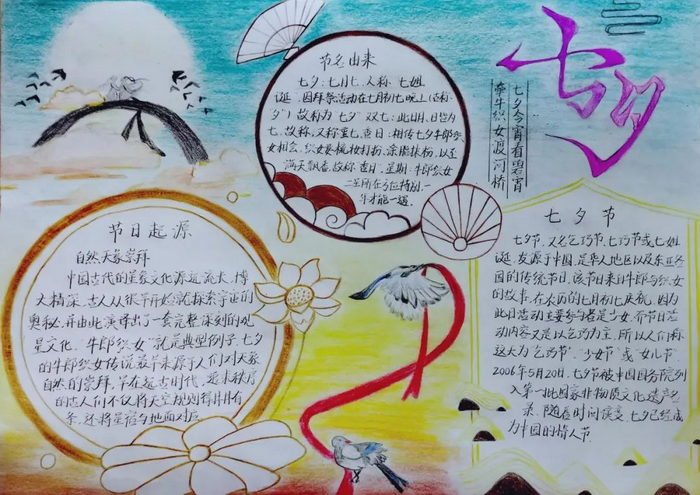 七夕
七夕今宵看碧霄
牵牛织女渡河桥
节名由来
七夕:七月七,人称:七姐
诞,因拜祭活动在七月初七晚上(古称:
夕")故称为"七夕"双七:此日月,日皆为
七,故称,又称重七;香日:相传七夕牛郎织
女相会,织女要梳妆打扮,涂脂抹粉,以至
满天飘香,故称香日,星期:牛郎织女
二星所在方位特别,一
年才能一遇.
节日起源
自然天象崇拜
中国古代的星象文化源远流大、博
大精深,古人从很早开始就探索宇宙的
奥秘,并由此演绎出了一套完整深刻的观
星文化.“牛郎织女”就是典型例子,七夕
的牛郎织女传说最早来源于人们对天象
自然的崇拜,早在远古时代,追求秩序
的古人们不仅将天空规划得井井有
条,还将星宿与地面对应.
七夕节
七夕节,又名乞巧节、七巧节或七姐
诞,发源于中国,是华人地区以及东亚各
国的传统节日,该节日来自牛郎与织女
的故事,在农历的七月初七庆祝,因为
此日活动主要参与者是少女,乔节日活
动内容又是以乞巧为主,所以人们称
这天为"乞巧节"、"少女节"或"女儿节".
2006年5月20日,七夕节被中国国务院列
入第一批国家非物质文化遗产名
录,随着时间演变,七夕已经成
为中国的情人节.